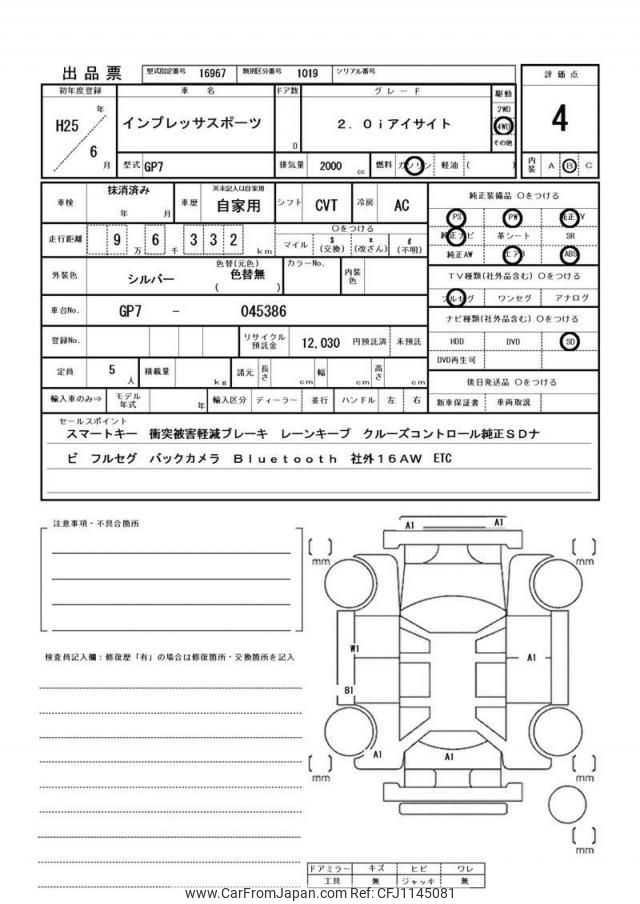 出品票 型式指定番号 16967 類別区分番号 1019 シリアル番号
初年度登録 車名 ドア数 グレード 駆動 評価点
H25 年 / 6 月 インプレッサスポーツ D 2.0iアイサイト 2WD 4WD その他 4
型式 GP7 排気量 2000 cc 燃料 ガソリン 軽油 ( ) 内装 A B C
車検 抹消済み 年 月 車歴 ※未記入は自家用 自家用 シフト CVT 冷房 AC
純正装備品 Oをつける
PS PW 純正TV
純正ナビ 革シート SR
純正AW エアB ABS
走行距離 9万 6千 3 3 2 km
Oをつける
マイル $(交換) *(改ざん) #(不明)
外装色 シルバー 色替(元色) 色替無 ( ) カラーNo. 内装色
TV種類(社外品含む) Oをつける
フルセグ ワンセグ アナログ
車台No. GP7 - 045386
ナビ種類(社外品含む) Oをつける
HDD DVD SD
DVD再生可
登録No. リサイクル預託金 12,030 円預託済 未預託
定員 5 人 積載量 kg 諸元 長さ cm 幅 cm 高さ cm
後日発送品 Oをつける
新車保証書 車両取説
輸入車のみ⇒ モデル年式 年 輸入区分 ディーラー 並行 ハンドル 左 右
セールスポイント
スマートキー 衝突被害軽減ブレーキ レーンキープ クルーズコントロール純正SDナ
ビ フルセグ バックカメラ Bluetooth 社外16AW ETC
注意事項・不具合箇所
検査員記入欄:修復歴「有」の場合は修復箇所・交換箇所を記入
A1 A1
[ ] mm [ ] mm
W1 A1
B1
A1 A1
[ ] mm [ ] mm
[ ] mm
ドアミラー キズ ヒビ ワレ
工具 無 ジャッキ 無
www.CarFromJapan.com - CFJ1145081